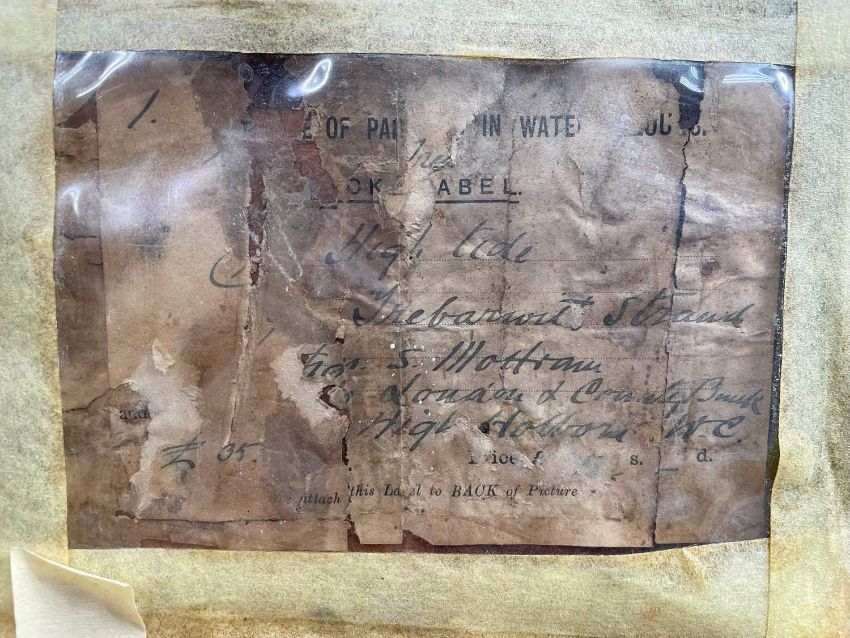 1.
OF PAI IN WATE
OK ABEL.
High tide
Trebarwith Strand
S. Mottram
London & County Bank
High Holborn W.C.
and
£ 35.
rice s. d.
attach this La el to BACK of Picture